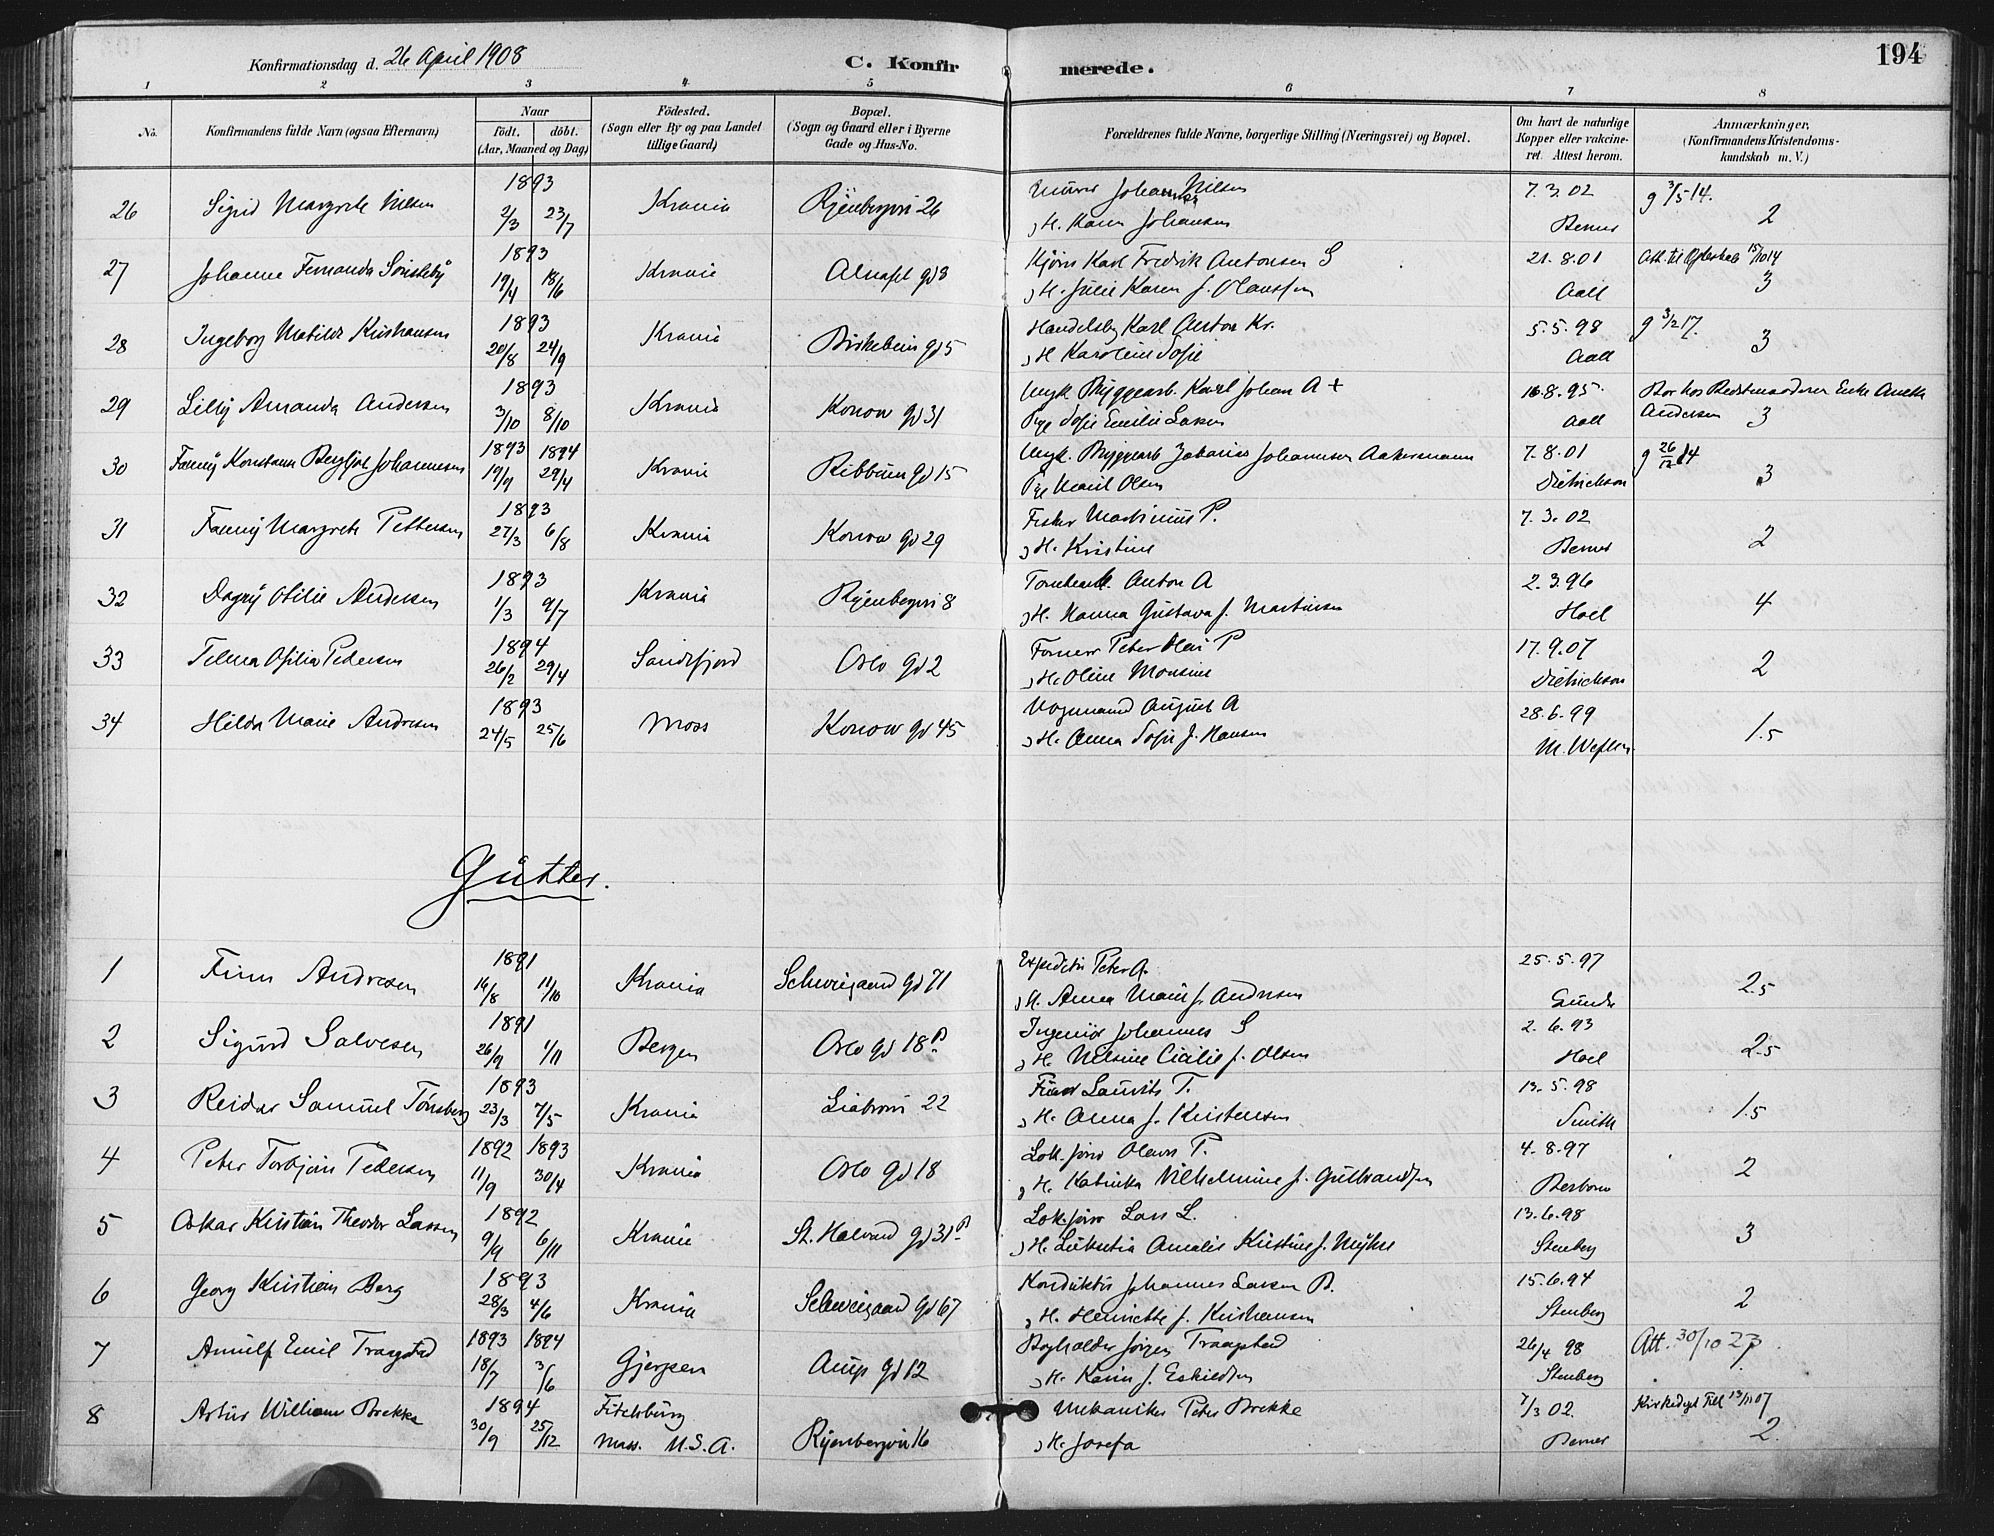 Konfirmationsdag d. 26 April 1908
C. Konfirmerede.
194
1 2 3 4 5 6 7 8
No.
Konfirmandens fulde Navn (ogsaa Efternavn)
Naar
födt. döbt.
(Aar, Maaned og Dag)
Födested.
(Sogn eller By og paa Landet
tillige Gaard)
Bopæl.
(Sogn og Gaard eller i Byerne
Gade og Hus-No.
Forældrenes fulde Navne, borgerlige Stilling (Næringsvei) og Bopæl.
Om havt de naturlige
Kopper eller vakcine-
ret. Attest herom.
Anmærkninger,
(Konfirmandens Kristendoms-
kundskab m. V.)
26 Sigrid Margrete Nilsen 1893 2/3 23/7 Krania Ryenbergvei 26 Murer Johannes Nilsen 7.3.02 g 3/5 14.
H. Karen Johansen Berner 2
27 Johanne Fernanda 1893 19/4 18/6 Krania Alnafet gd 8 Kjörer Karl Fredrik Antonsen S 21.8.01 15/10 14
H. Julie Karen f. Olaussen Aall 3
28 Ingeborg Matilde Kristiansen 1893 20/8 24/9 Krania Birkebein gd 5 Handelsby Karl Anton Kr. 5.5.98 g 3/2 17.
H Karoline Sofie Aall 3
29 Lilly Amanda Andersen 1893 3/10 8/10 Krania Konow gd 31 Ungk. Bryggearb. Karl Johan A + 16.8.95 Bor hos Bedstemoderen Enke Anette
Pge Sofie Emilie Larsen Aall Andersen 3
30 Fanny Konstanse Bergljot Johannesen 1893 1894 19/9 29/4 Krania Ribbung gd 15 Ungk. Bryggearb Zakarias Johannesen Aakermann 7.8.01 g 26/12 14
Pge Marit Olsen Dietrichson 3
31 Fanny Margrete Pettersen 1893 27/3 6/8 Krania Konow gd 29 Fisker Martinius P. 7.3.02
H. Kristine Berner 2
32 Dagny Otilie Andersen 1893 1/3 9/7 Krania Ryenbergvei 8 Anton A 2.3.96
H. Hanna Gustava f. Martinsen Hoel 4
33 Telma Ofilia Pedersen 1894 26/2 29/4 Sandefjord Oslo gd 2 Former Peter Olai P 17.9.07
H. Oline Monsine Dietrichson 2
34 Hilda Marie Andresen 1893 24/5 25/6 Moss Konow gd 45 Vognmand August A 28.6.99
H. Anna Sofie f. Hansen 1.5
Gutter.
1 Finn Andresen 1891 16/8 11/10 Krania Schweigaard gd 71 Expeditör Peter A. 25.5.97
H. Anna Marie f. Andersen 2.5
2 Sigurd Salvesen 1891 26/9 1/11 Bergen Oslo gd 18B Ingeniör Johannes S 2.6.93
H. Nilsine Cicilie f. Olsen Hoel 2.5
3 Reidar Samuel Tönsberg 1893 23/3 7/5 Krania Liabrovei 22 Laurits T. 13.5.98
H. Anna f. Kristensen Smith 1.5
4 Peter Torbjörn Pedersen 1892 1893 11/9 30/4 Krania Oslo gd 18 Lok.förer Olaus P. 4.8.97
H. Katinka Vilhelmine f. Gulbrandsen 2
5 Oskar Kristian Theodor Larsen 1892 9/9 6/11 Krania St. Halvard gd 31B Lok.förer Lars L. 13.6.98
H. Lukretia Amalie Kristine f. Myhre Stenberg 3
6 Georg Kristian Berg 1893 28/3 4/6 Krania Schweigaard gd 67 Konduktör Johannes Larsen B. 15.6.94
H. Henriette f. Kristiansen Stenberg 2
7 Arnulf Emil Traagstad 1893 1894 18/7 3/6 Gjerpen Arup gd 12 Bogholder Jörgen Traagstad 26/4 98 Att. 30/10 23
H. Karin f. Eskildsen Stenberg
8 Artur William Brekke 1894 30/9 25/12 Fitchburg Ryenbergvei 16 Mekaniker Peter Brekke 7/3 02. 13/11 07
Mass. U.S.A. H. Josefa Berner 2.